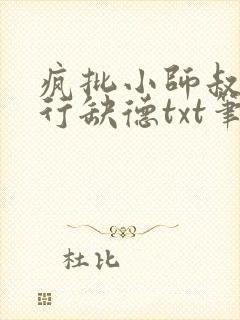 疯批小師叔
行缺德txt筆
杜比